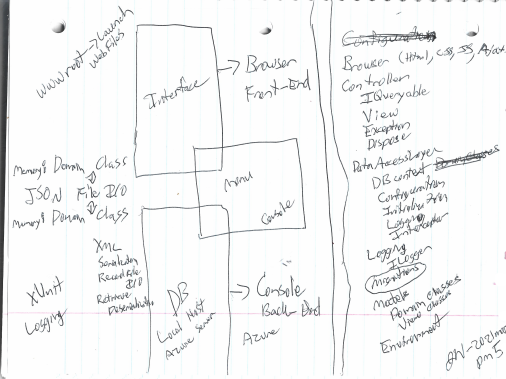 wwwroot → Launch
Web Files
Interface
→ Browser
Front-End
Memory: Domain Class
JSON File I/O
Memory: Domain Class
Menu
Console
XML
Serialization
Record File
I/O
Retrieve
Deserialization
XUnit
Logging
DB
Local Host
Azure Server
→ Console
Back-End
Azure
Configuration
Browser (Html, CSS, JS, Ajax
Controller
IQueryable
View
Exception
Dispose
Data Access Layer
DB context
Configuration
Initialization
Logging
Interceptor
Logging
ILogger
Migrations
Models
Domain classes
View classes
Environment